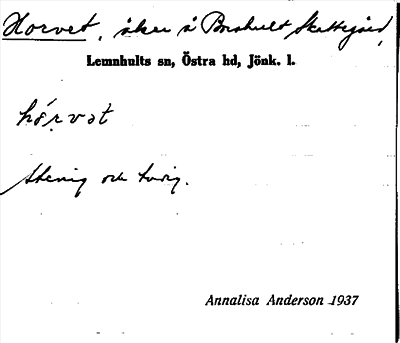 Horvet, åker å Boshult Skattegård,
Lemnhults sn, Östra hd, Jönk. l.
hórvət
Stenig och torig.
Annalisa Anderson 1937